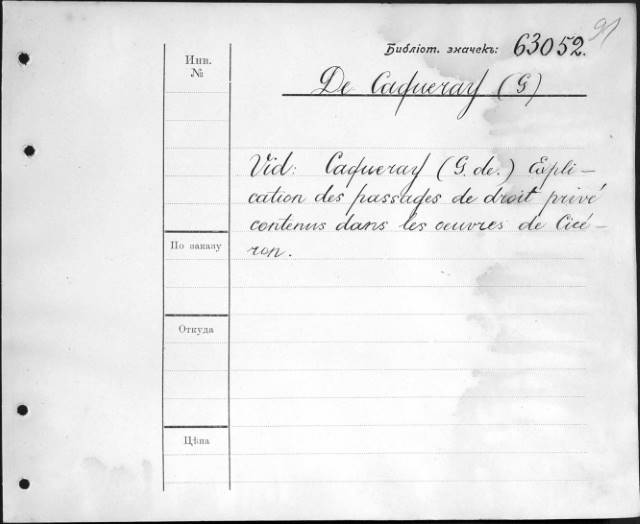 91
Библіот. значекъ: 63052.
Инв.
№
De Caqueray (G)
Vid: Caqueray (G. de.) Expli-
cation des passages de droit privé
contenus dans les oeuvres de Cicé-
ron.
По заказу
Откуда
Цѣна